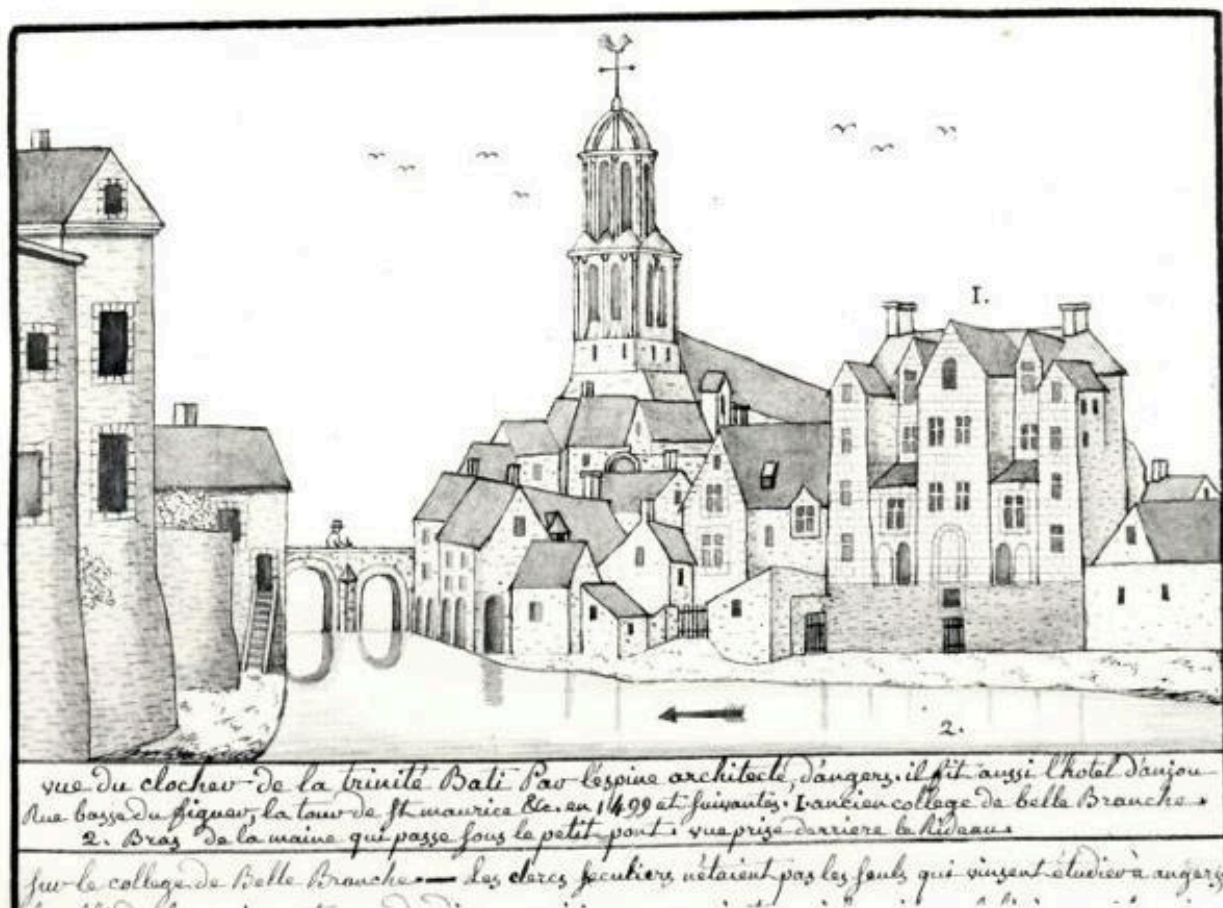 1.
2.
vue du clocher de la trinité Bati Par l'espine architecte, d'angers. il fit aussi l'hotel d'anjou
Rue basse du figuier, la tour de St maurice &c. en 1499 et suivantes. 1. ancien college de belle Branche.
2. Bras de la maine qui passe sous le petit pont. vue prise derriere le Rideau.
sur le college de Belle Branche. — Les clercs seculiers n'étaient pas les seuls qui vinsent étudier à angers